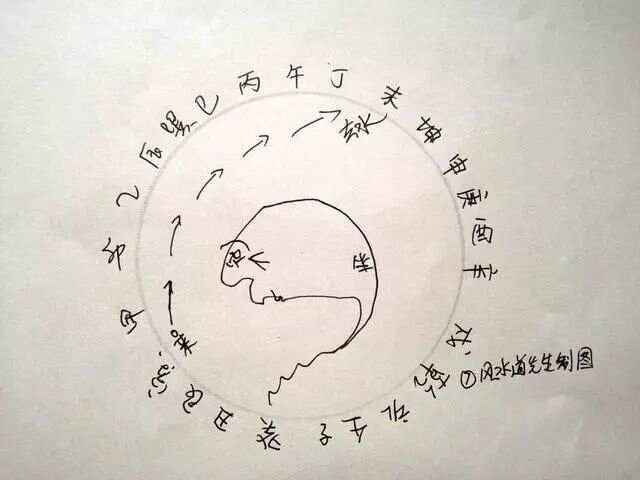 丙 午 丁 未 坤 申 庚 酉 辛 戌 乾 亥 壬 子 癸 丑 艮 寅 甲 卯 乙 辰 巽 巳
去水
风水道先生制图